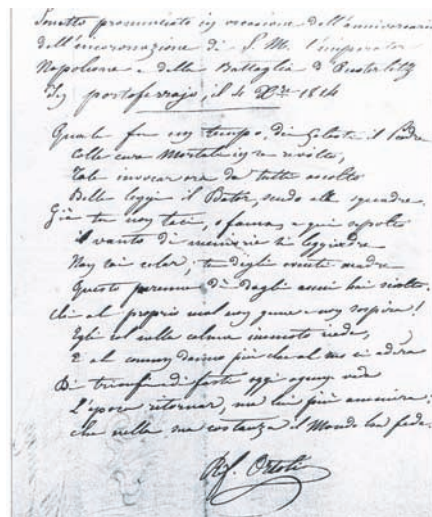 Sonetto pronunciato in occasione dell'anniversario
dell'incoronazione di S. M. l'imperator
Napoleone e della Battaglia d'Austerlitz
In portoferrajo, il 4 Xbre 1814
fu un tempo, dei Celesti il Padre
Colle cure Mortali in se rivolto,
Tale invocar ora da tutti ascolto
Delle leggi il Dator, alle squadre.
Già tu non taci, o fama, e qui sepolto
il vanto di memorie sì leggiadre
Non sai celar; tu degli eventi madre
Questo perenne dì dagli anni hai
Chi al proprio mal non geme e non sospira!
Egli sol nella calma immoto siede,
E al comun danno più che al suo
Di trionfi e di feste oggi ognun vede
L'epoca ritornar, ma lui più ammira:
che nella sua costanza il Mondo ha fede.
Rif. Ortoli